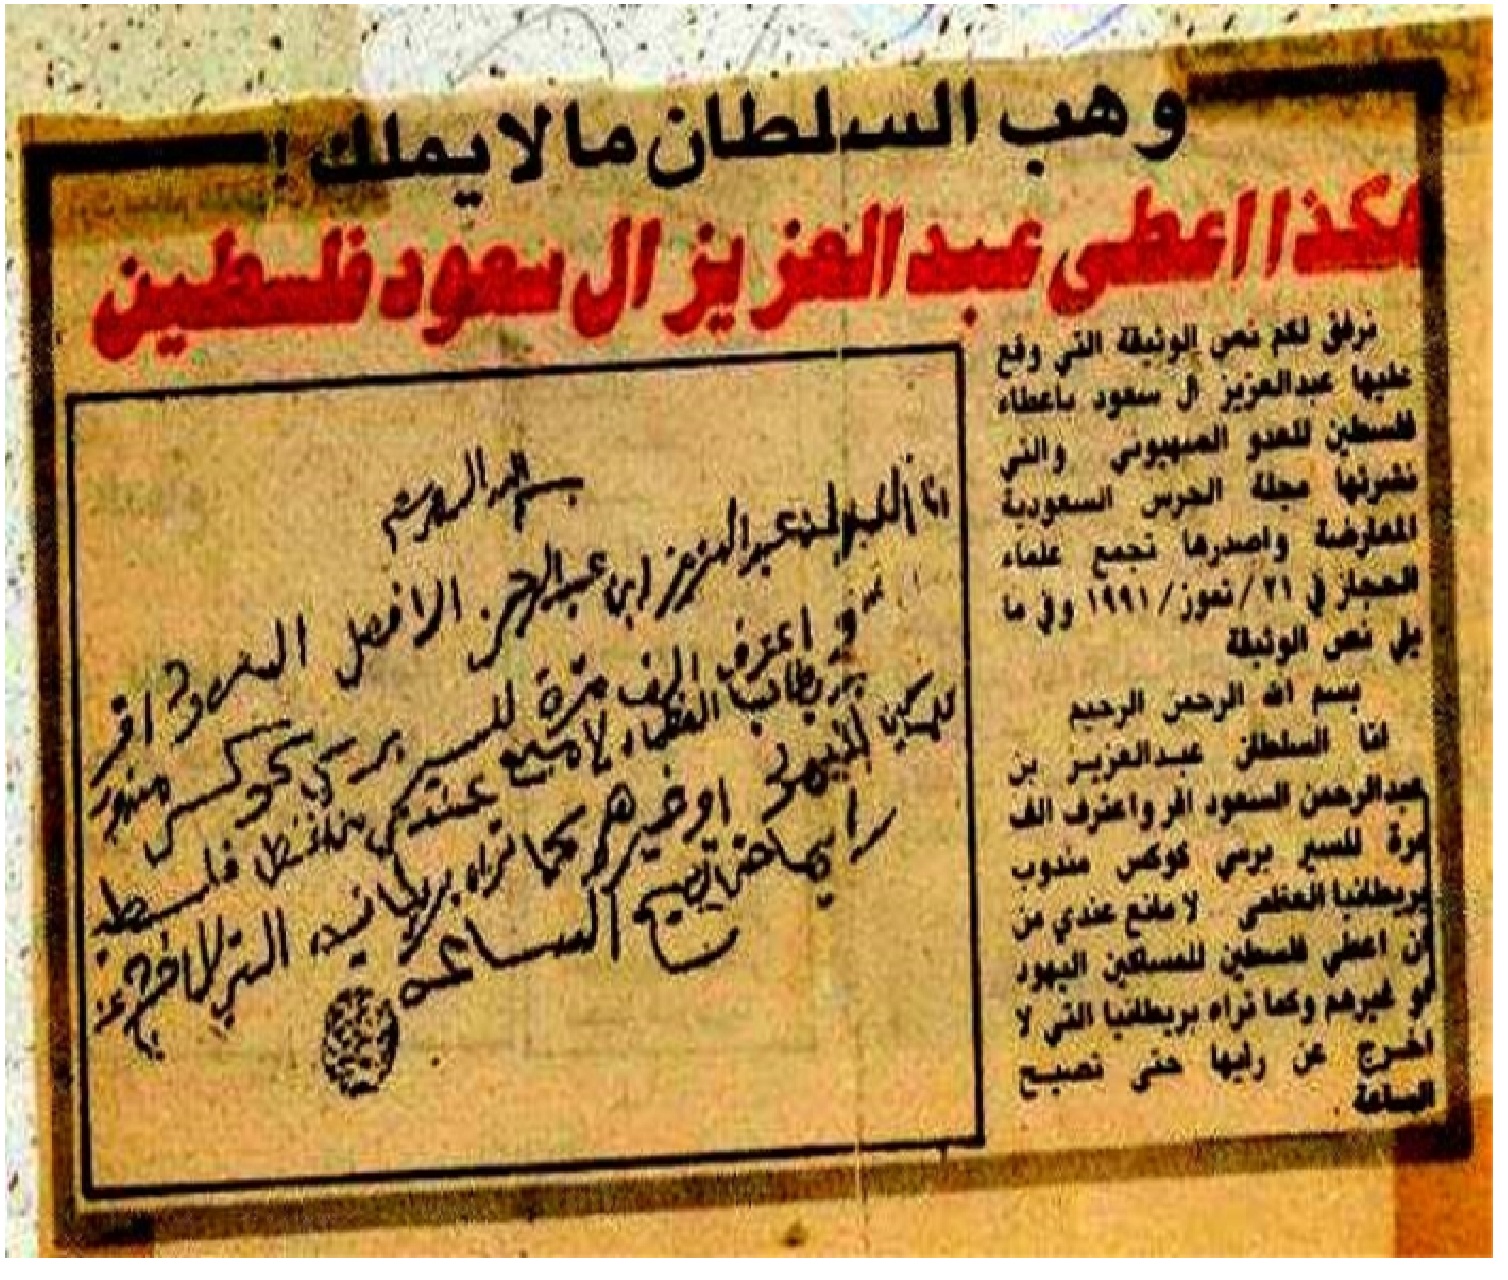 وهب السلطان مالايملك !
هكذا اعطى عبدالعزيز ال سعود فلسطين
نرفق لكم نص الوثيقة التي وقع
عليها عبدالعزيز ال سعود باعطاء
فلسطين للعدو الصهيوني والتي
نشرتها مجلة الحرس السعودية
المعارضة واصدرها تجمع علماء
الحجاز في ٢١/تموز/١٩٩١ وفي ما
يلي نص الوثيقة
بسم الله الرحمن الرحيم
انا السلطان عبدالعزيز بن
عبدالرحمن السعود اقر واعترف الف
مرة للسير برسي كوكس مندوب
بريطانيا العظمى لا مانع عندي من
أن اعطي فلسطين للمساكين اليهود
او غيرهم وكما تراه بريطانيا التي لا
اخرج عن رايها حتى تصبح
الساعة .
انا السلطان عبد العزيز ابن عبد الرحمن السعود اقر
و اعترف الف مرة للسير برسي كوكس مندوب
بريطانيا العظما لا عندي فلسطين
اليهود او غيرهم كما تراه بريطانيا التي لا اخرج عن
رايها حتى تصيح الساعه